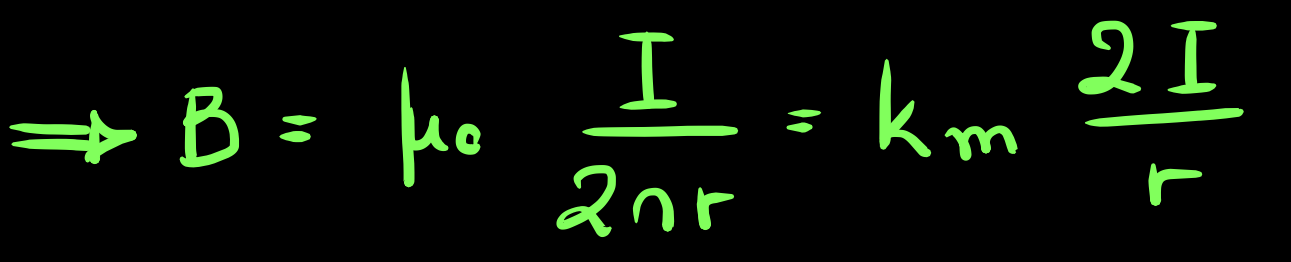 ⟹ B = μ₀ I/2πr = kₘ 2I/r